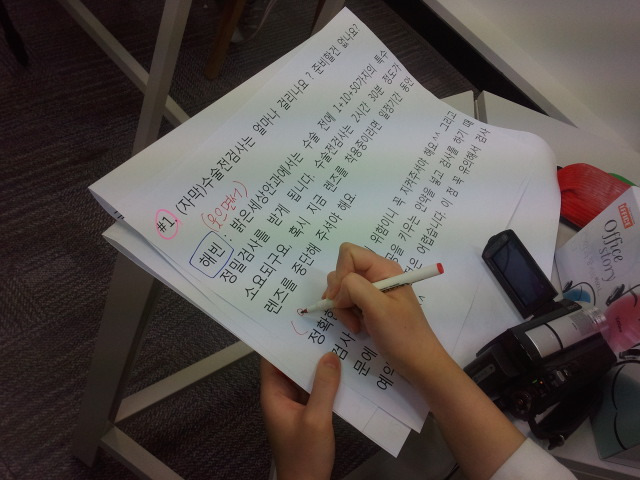 #1. (자막)수술전검사는 얼마나 걸리나요? 준비할건 없나요?
(웃으면서)
해빈 : 밝은세상안과에서는 수술 전에 1+10+50가지의 특수
정밀검사를 받게 됩니다. 수술전검사는 2시간 30분 정도가
소요되구요, 혹시 지금 렌즈를 착용중이라면 일정기간 동안
렌즈를 중단해 주셔야 해요.
정확한 위함이니 꼭 지켜주셔야 해요^^ 그리고
검사 동공을 키우는 안약을 넣고 검사를 하기 때
문에 은 어렵습니다. 이 점 꼭 유의해서 검사
예약 ^^
Office
story